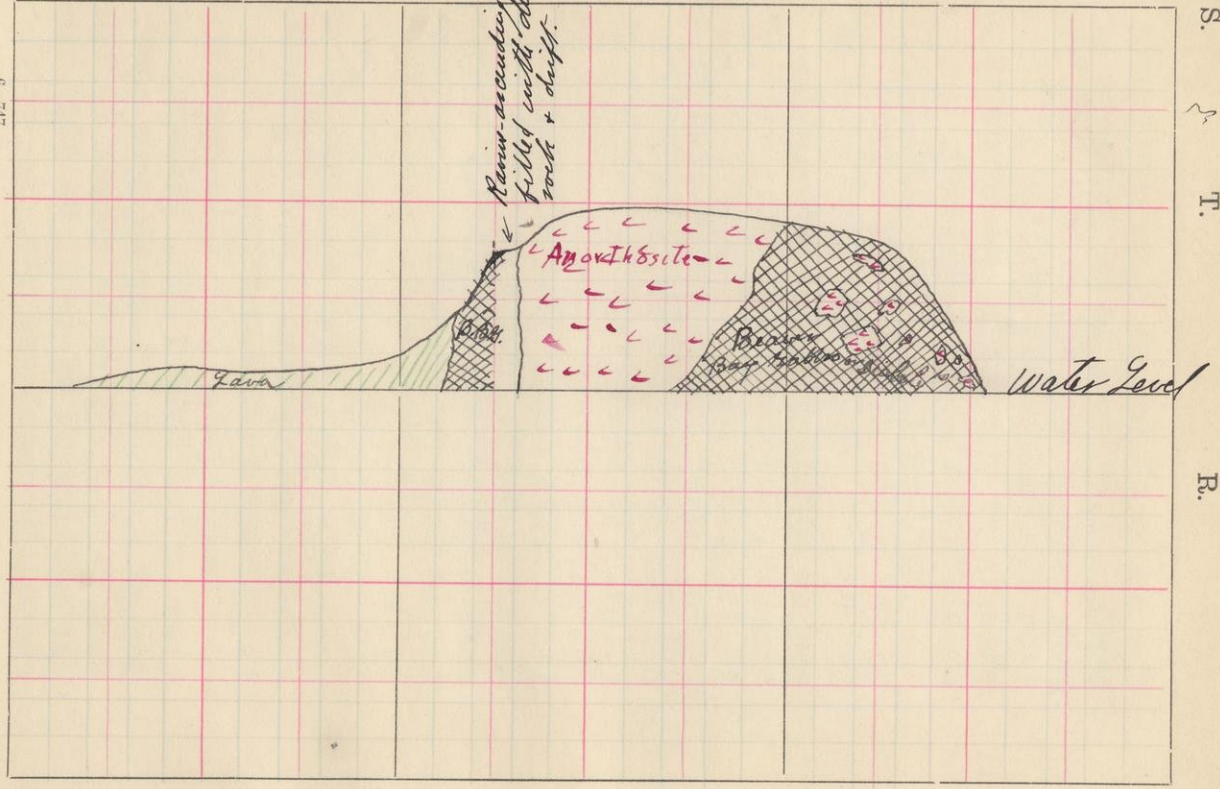 S.
T.
R.
Ravine-ascending
filled with
rock & drift.
Anorthosite
B.B.G.
Beaver
Bay
Lava
Water Level